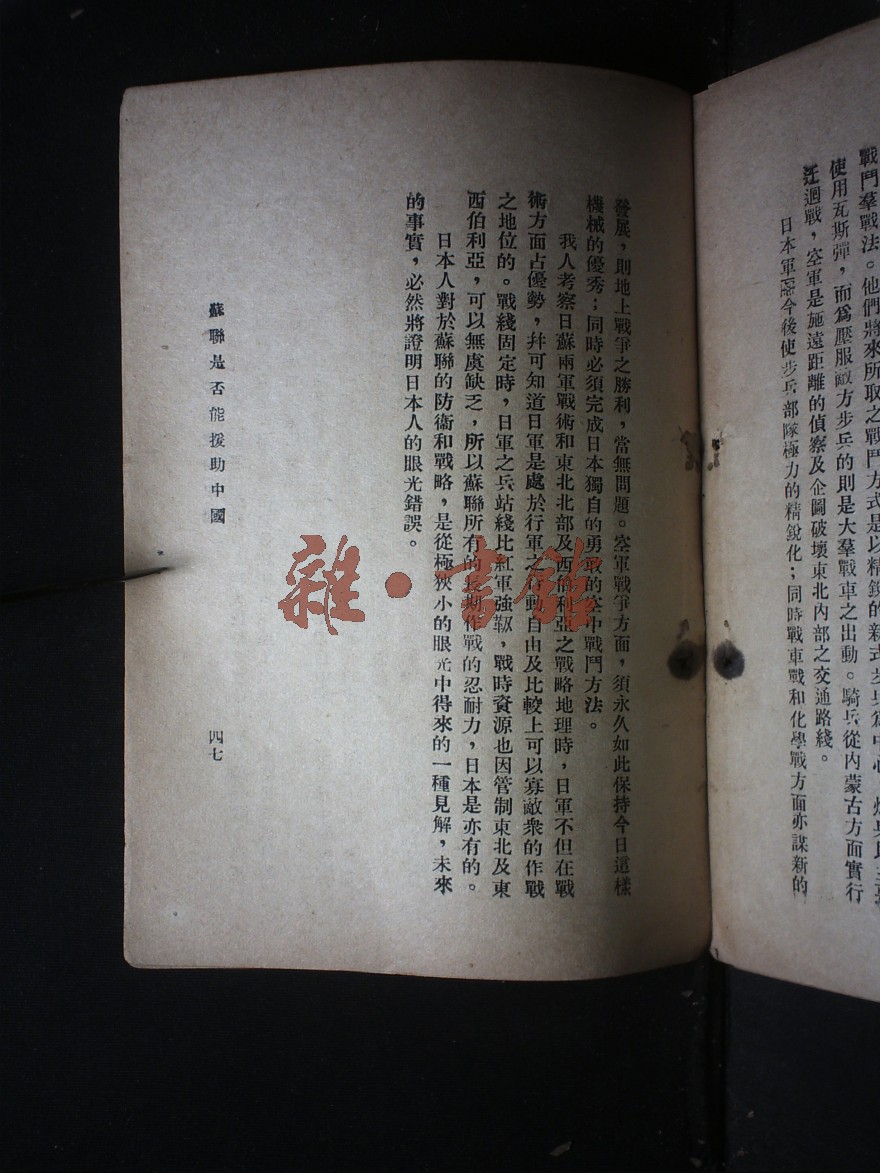 戰鬥羣戰法。他們將來所取之戰鬥方式是以精銳的新式步兵為中心
使用瓦斯彈，而為壓服敵方步兵的則是大羣戰車之出動。騎兵從內蒙古方面實行
迂迴戰，空軍是施遠距離的偵察及企圖破壞東北內部之交通路綫。
日本軍部今後使步兵部隊極力的精銳化；同時戰車戰和化學戰方面亦謀新的
發展，則地上戰爭之勝利，當無問題。空軍戰爭方面，須永久如此保持今日這樣
機械的優秀；同時必須完成日本獨自的勇敢的空中戰鬥方法。
我人考察日蘇兩軍戰術和東北北部及西伯利亞之戰略地理時，日軍不但在戰
術方面占優勢，幷可知道日軍是處於行軍之行動自由及比較上可以寡敵衆的作戰
之地位的。戰綫固定時，日軍之兵站綫比紅軍強韌，戰時資源也因管制東北及東
西伯利亞，可以無虞缺乏，所以蘇聯所有的長期作戰的忍耐力，日本是亦有的。
日本人對於蘇聯的防衞和戰略，是從極狹小的眼光中得來的一種見解，未來
的事實，必然將證明日本人的眼光錯誤。
蘇聯是否能援助中國
四七
雜·書館